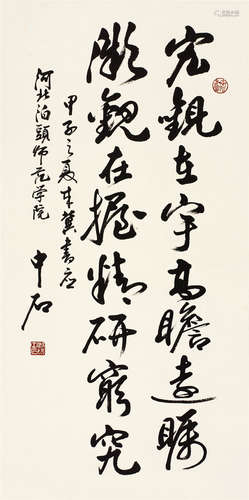 宏觀在宇高瞻遠矚
微觀在握精研窮究
甲子之夏來冀書應
河北泊頭師范学院
中石